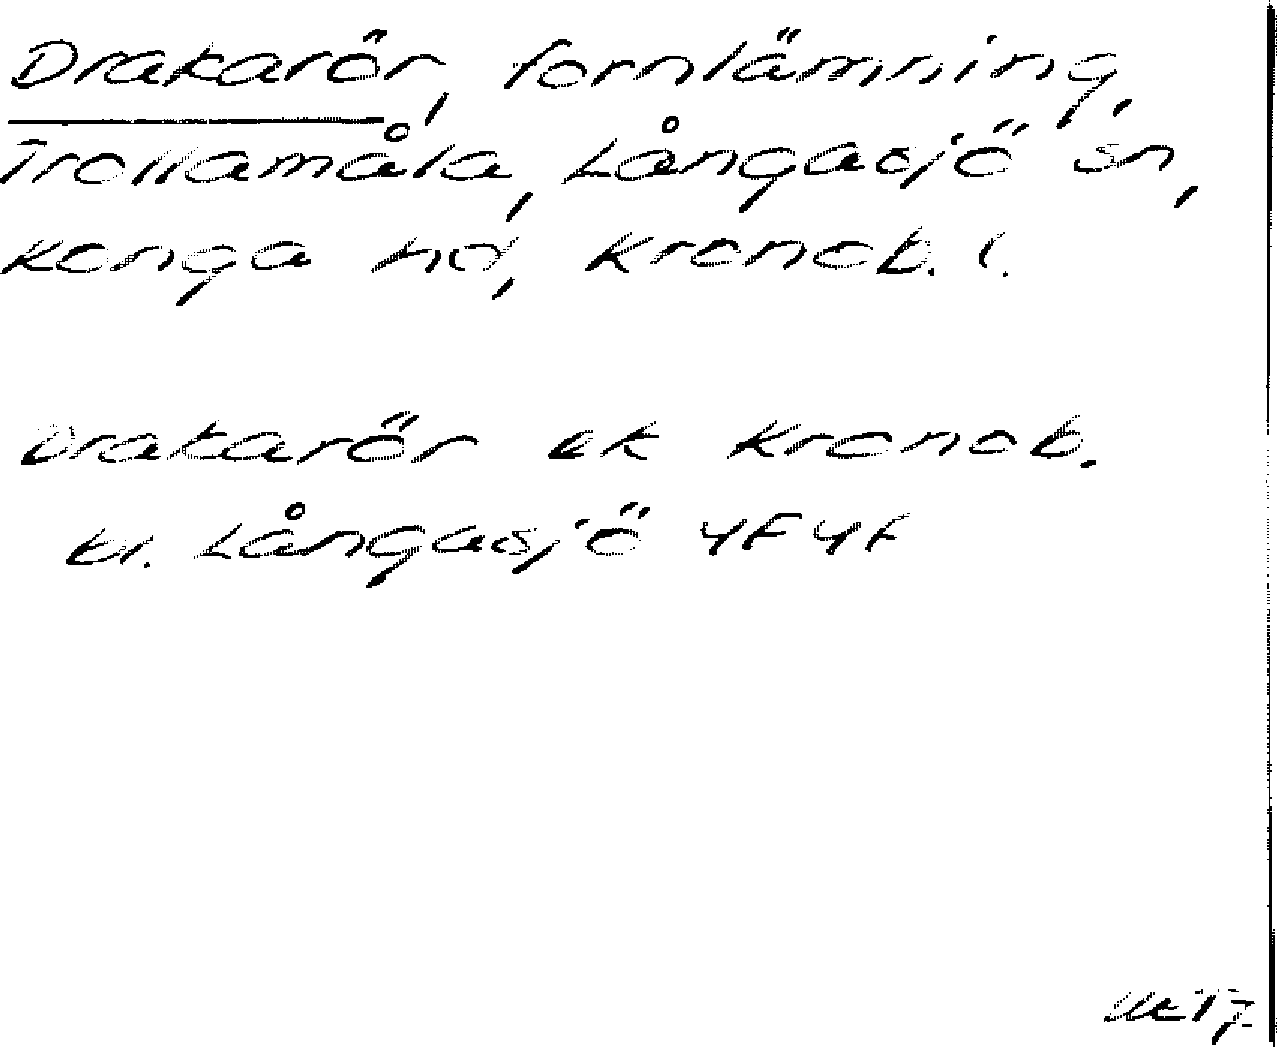 Drakarör, fornlämning,
Trollamåla, Långasjö sn,
Konga hd, Kronob. l.
Drakarör ek Kronob.
bl. Långasjö 4F4f